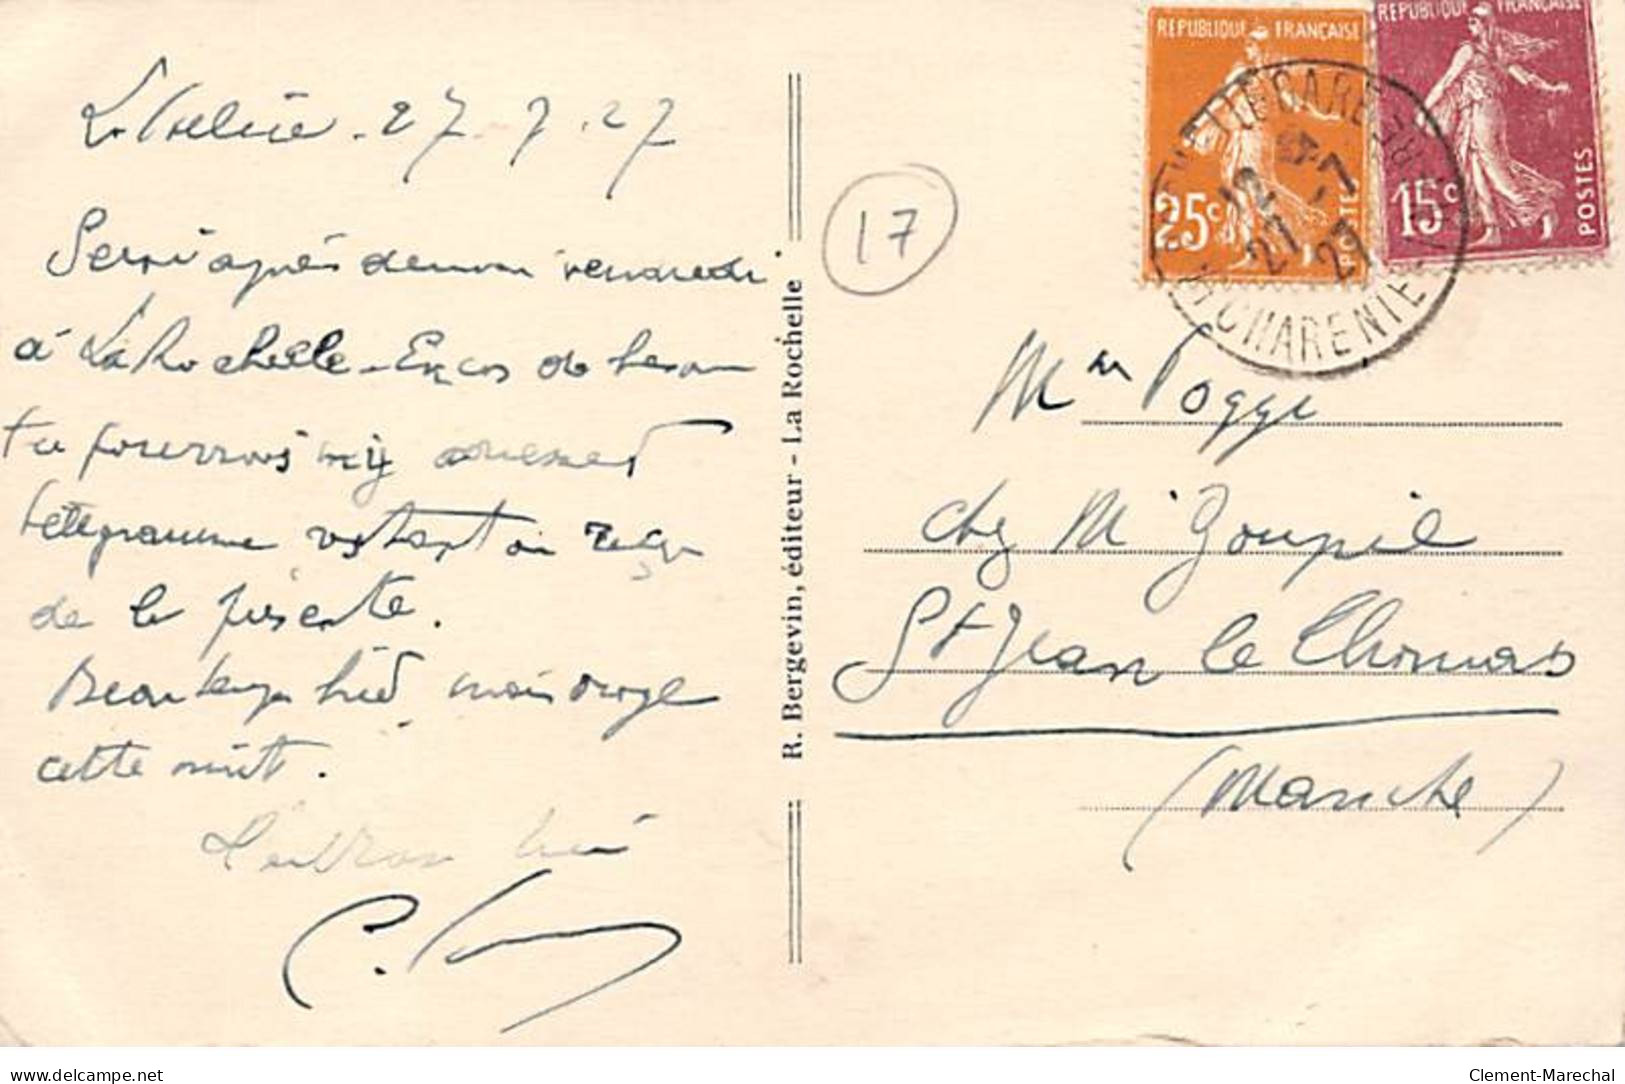 27.7.27
Serai après demain vendredi
à La Rochelle - En cas de besoin
tu pourrais m'y
télégramme au reçu
de la présente.
Beau temps mais orage
cette nuit.
C.
R. Bergevin, éditeur - La Rochelle
17
REPUBLIQUE FRANÇAISE
25c
POSTES
REPUBLIQUE FRANÇAISE
15c
POSTES
27 27
CHARENTE
Poggi
chez Mr Goupil
St Jean le Thomas
(Manche)
delcampe.net
Clement-Marechal